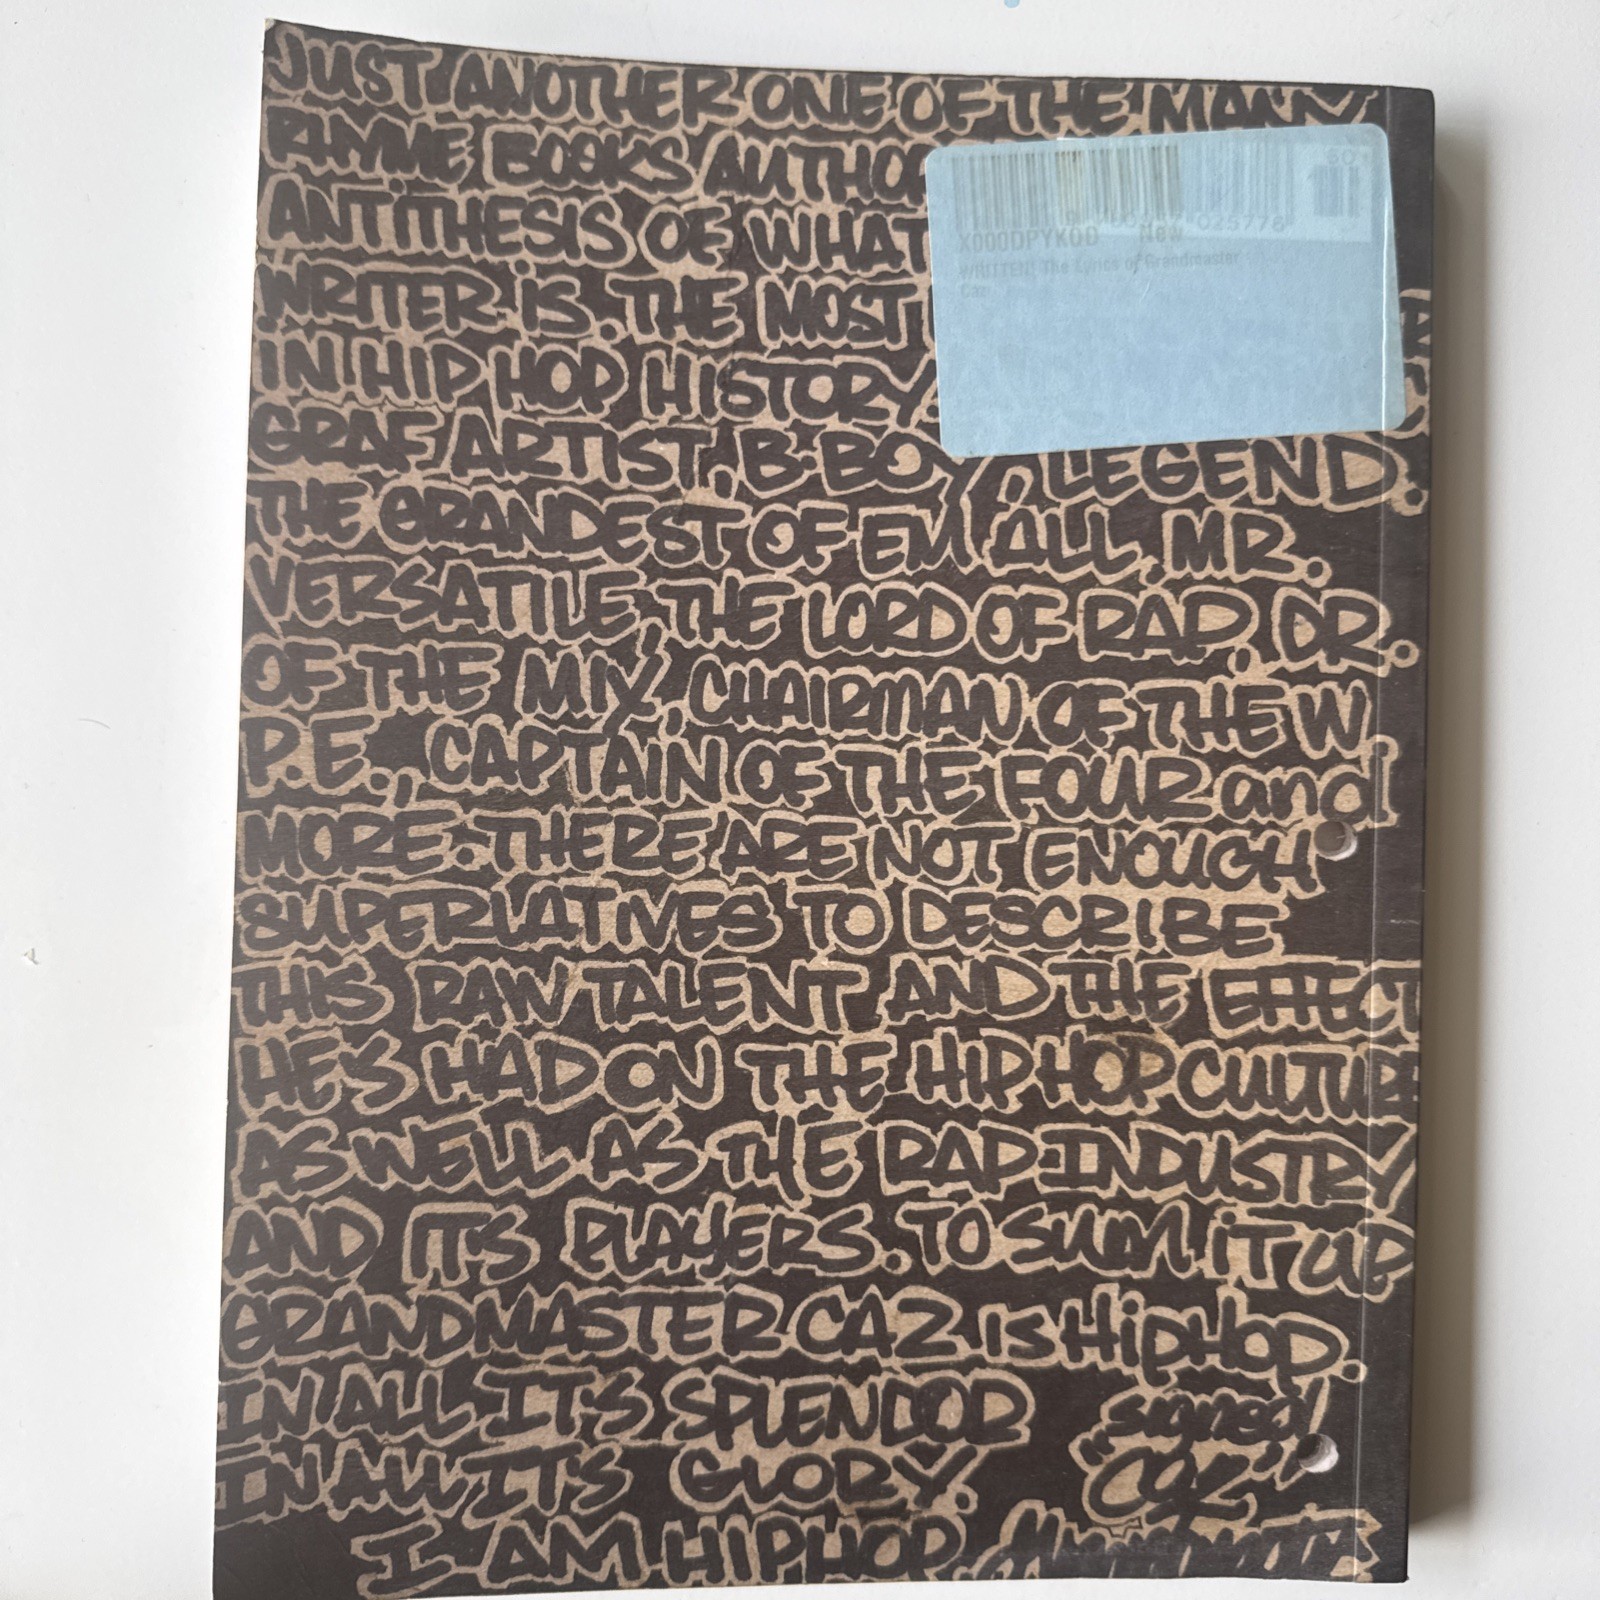 JUST ANOTHER ONE OF THE MANY
RHYME BOOKS
ANTITHESIS OF WHAT
WRITER IS. THE MOST
IN HIP HOP HISTORY.
GRAF ARTIST, B-BOY, A LEGEND.
THE GRANDEST OF EM ALL, MR.
VERSATILE, THE LORD OF RAP, DR.
OF THE MIX, CHAIRMAN OF THE W.
P.E., CAPTAIN OF THE FOUR and
MORE. THERE ARE NOT ENOUGH
SUPERLATIVES TO DESCRIBE
THIS RAW TALENT AND THE EFFECT
HE'S HAD ON THE HIP HOP CULTURE
AS WELL AS THE RAP INDUSTRY
AND IT'S PLAYERS. TO SUM iT UP
GRANDMASTER CAZ IS HipHop.
IN ALL IT'S SPLENDOR
IN ALL IT'S GLORY.
"signed"
Caz
I AM HIPHOP.
X000DPYK0D New
WRITTEN! The Lyrics of Grandmaster
Caz